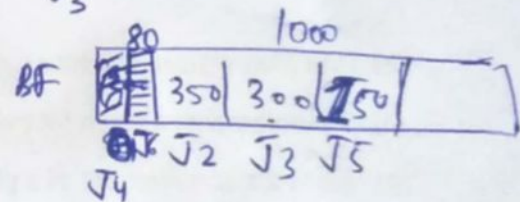 80 1000
BF 350 300 150
J2 J3 J5
J4